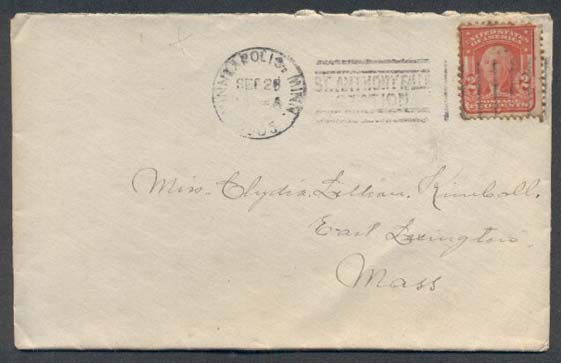 MINNEAPOLIS. MINN
SEP 28
A
05
ST. ANTHONY FALLS
STATION
UNITED STATES
OF AMERICA
2 2
POSTAGE
TWO CENTS
Miss. Clydia Lillian. Kimball.
East Lexington.
Mass